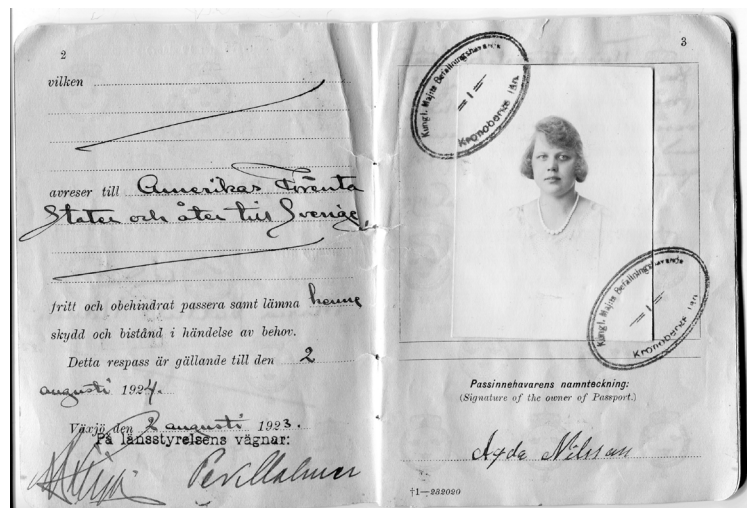 2
vilken
avreser till Amerikas Förenta
Stater och åter till Sverige
fritt och obehindrat passera samt lämna henne
skydd och bistånd i händelse av behov.
Detta respass är gällande till den 2
augusti 1924.
Växjö den 2 augusti 1923.
På länsstyrelsens vägnar:
3
Kungl. Majs:ts Befallningshavande
i
Kronobergs län
Kungl. Majs:ts Befallningshavande
i
Kronobergs län
Passinnehavarens namnteckning:
(Signature of the owner of Passport.)
Nilsson
†1—232020